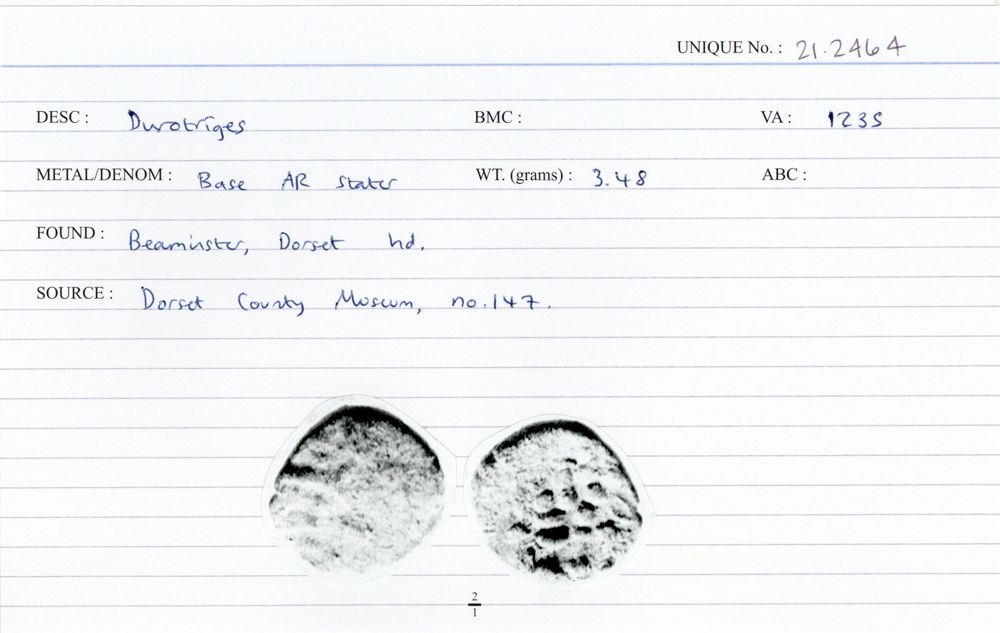 UNIQUE No. : 21.2464
DESC : Durotriges BMC : VA : 1235
METAL/DENOM : Base AR stater WT. (grams) : 3.48 ABC :
FOUND : Beaminster, Dorset hd.
SOURCE : Dorset County Museum, no.147.
2
1